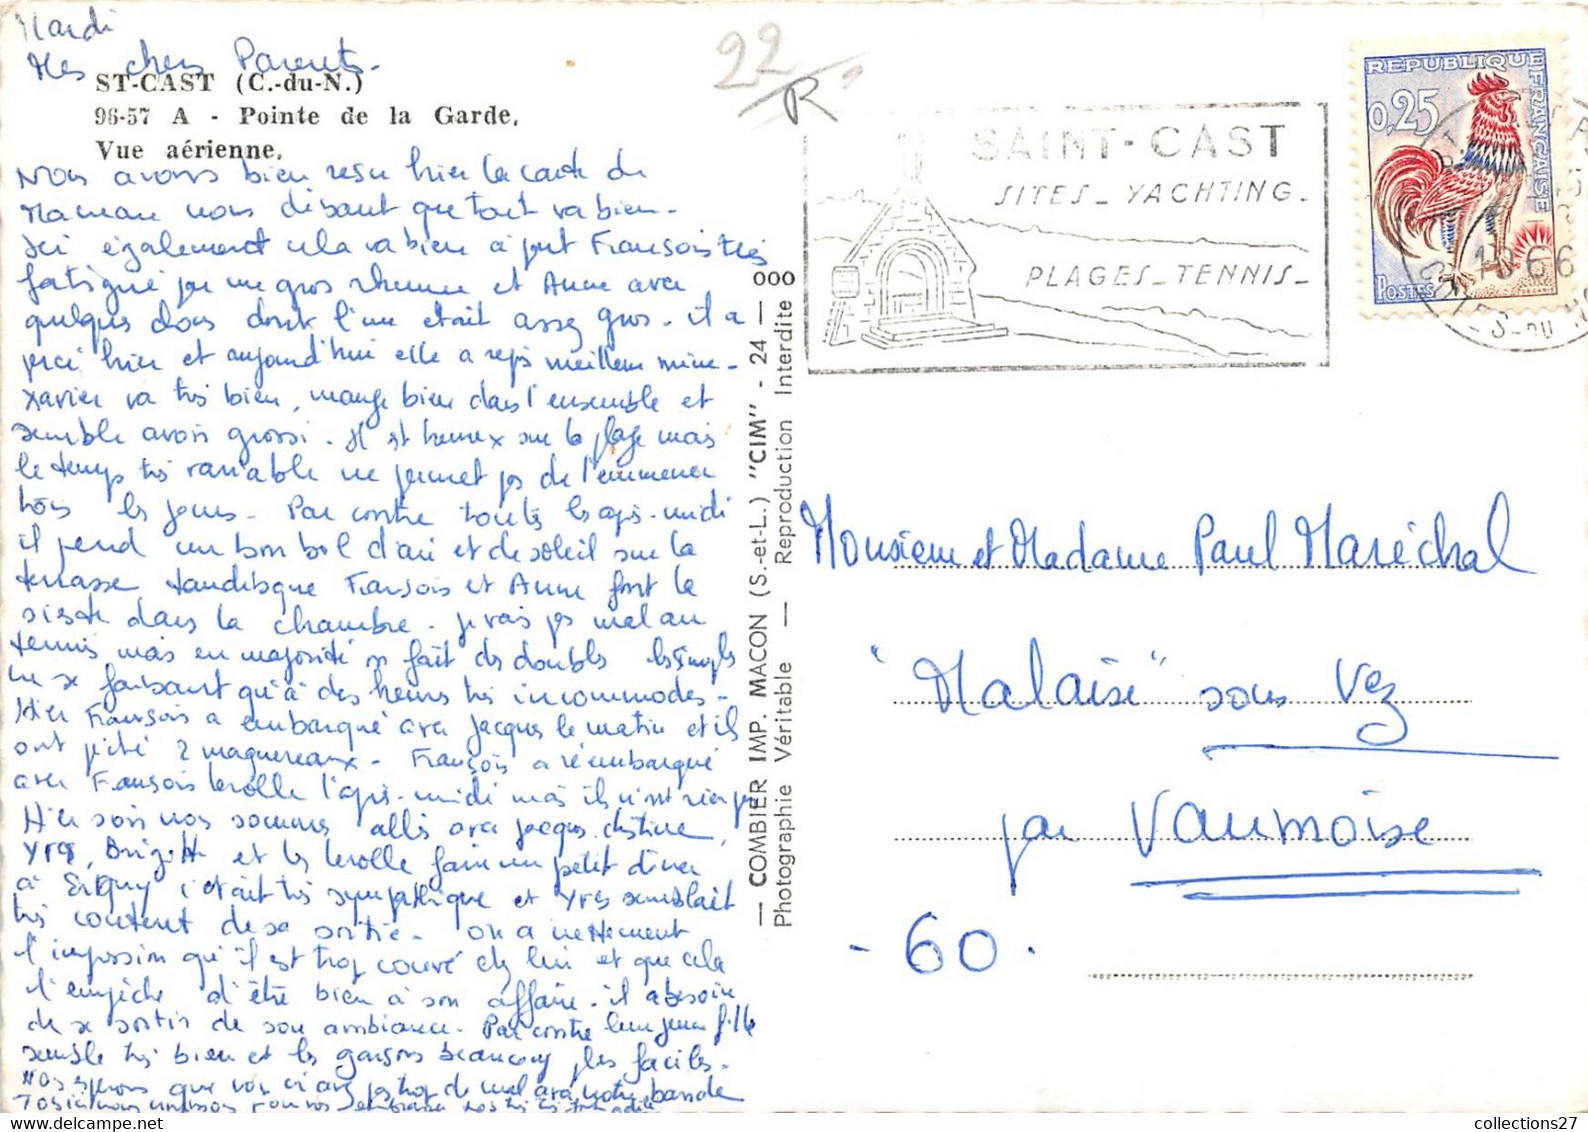 Mardi
Mes chers Parents.
ST-CAST (C.-du-N.)
96-57 A - Pointe de la Garde,
Vue aérienne.
Nous avons bien resu hier la carte de
Maman nous disant que tout va bien -
Ici également cela va bien à part Fransois très
fatigué par un gros rhume et Anne avec
quelques clous dont l'un était assez gros - il a
percé hier et aujourd'hui elle a repris meilleure mine -
Xavier va très bien, mange bien dans l'ensemble et
semble avoir grossi. Il est heureux sur la plage mais
le temps très variable ne permet pas de l'emmener
tous les jours - Par contre toutes les après-midi
il prend un bon bol d'air et de soleil sur la
terrasse tandisque Fransois et Anne font la
sieste dans la chambre. Je vais pas mal au
tennis mais en majorité on fait des doubles les simples
ne se faisant qu'à des heures très incommodes -
Hier Fransois a embarqué avec Jacques le matin et ils
ont pêché 2 maquereaux - François a réembarqué
avec Fransois Lerolle l'après-midi mais ils n'ont rien pris
Hier soir nos sommes allés avec Jacques, Christine,
Yves, Brigitte et les Lerolle faire un petit diner
à Erquy c'était très sympathique et Yves semblait
très content de sa sortie - On a nettement
l'impression qu'il est trop couvé chez lui et que cela
l'empêche d'être bien à son affaire - il a besoin
de se sortir de son ambiance - Par contre leur jeune fille
semble très bien et les garsons beaucoup plus faciles -
Nos espérons que vous n'avez pas trop de mal avec notre bande
COMBIER IMP. MACON (S.-et-L.) "CIM" - 24 - 000
Photographie Véritable - Reproduction Interdite
22
R
SAINT-CAST
SITES - YACHTING -
PLAGES - TENNIS -
REPUBLIQUE FRANÇAISE
0,25
POSTES
Monsieur et Madame Paul Maréchal
"Malaise" sous Vez
par Vaumoise
- 60.
collections27